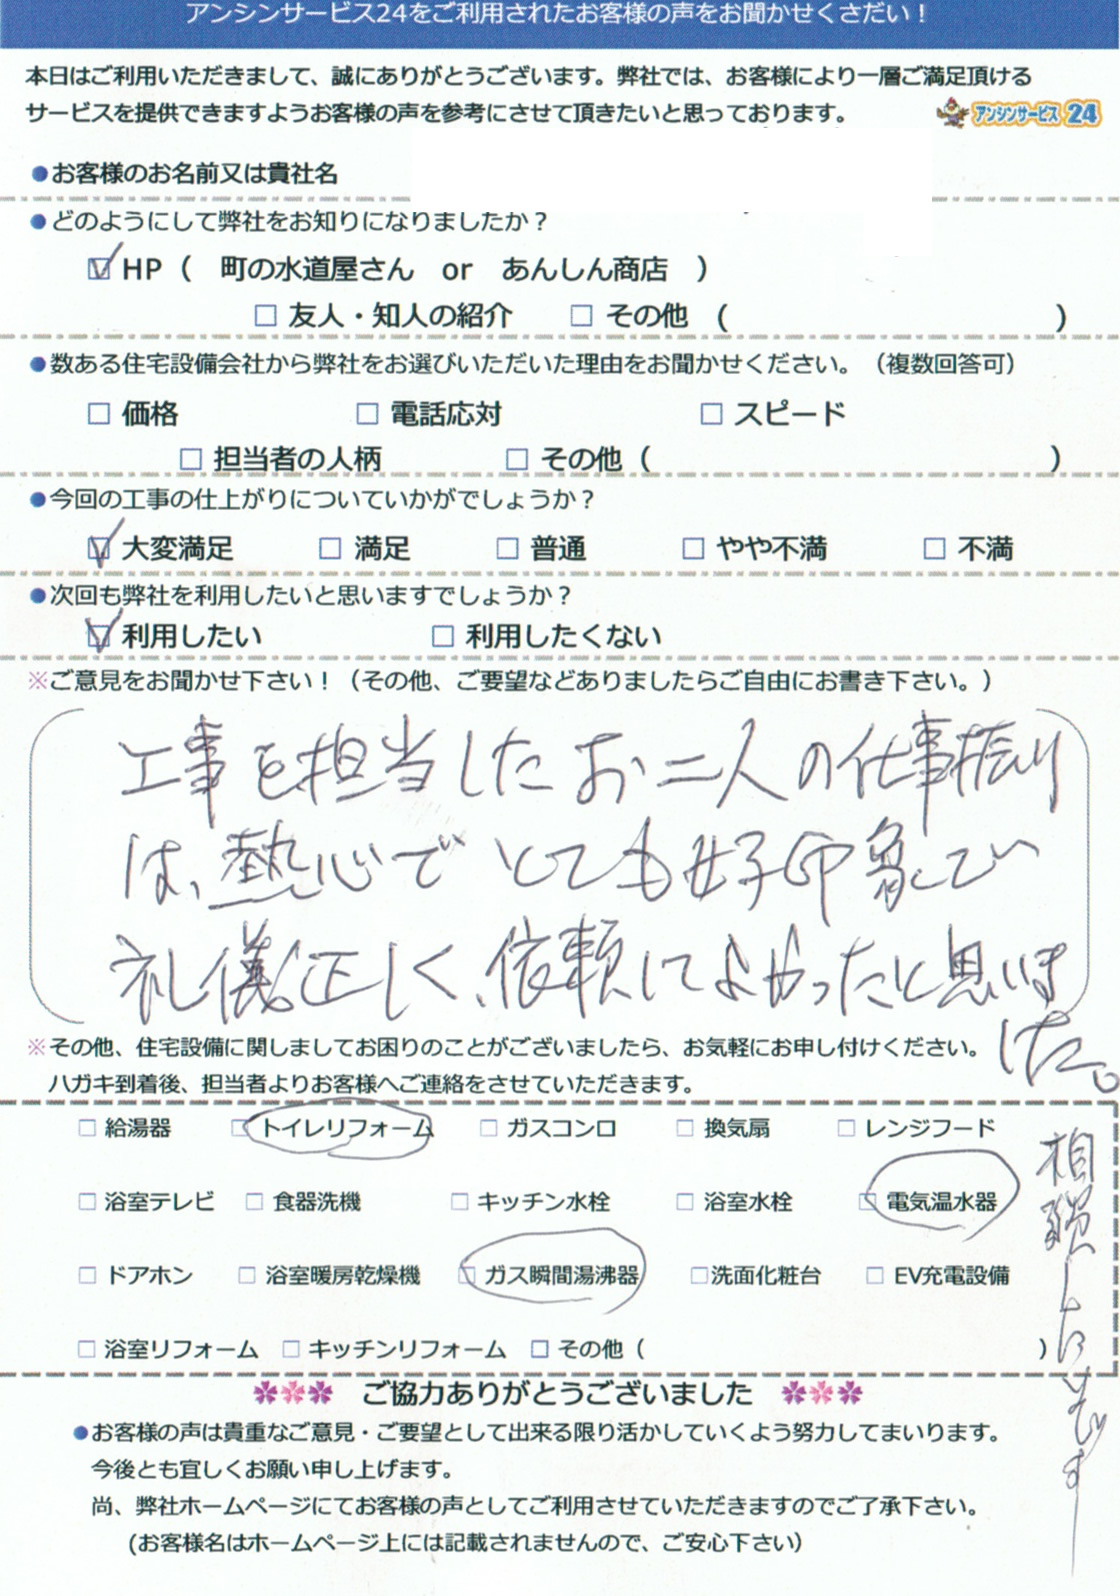 アンシンサービス24をご利用されたお客様の声をお聞かせくさだい！
本日はご利用いただきまして、誠にありがとうございます。弊社では、お客様により一層ご満足頂ける
サービスを提供できますようお客様の声を参考にさせて頂きたいと思っております。
アンシンサービス24
●お客様のお名前又は貴社名
●どのようにして弊社をお知りになりましたか？
☑ HP（ 町の水道屋さん or あんしん商店 ）
□ 友人・知人の紹介 □ その他 （ ）
●数ある住宅設備会社から弊社をお選びいただいた理由をお聞かせください。（複数回答可）
□ 価格 □ 電話応対 □ スピード
□ 担当者の人柄 □ その他（ ）
●今回の工事の仕上がりについていかがでしょうか？
☑ 大変満足 □ 満足 □ 普通 □ やや不満 □ 不満
●次回も弊社を利用したいと思いますでしょうか？
☑ 利用したい □ 利用したくない
※ご意見をお聞かせ下さい！（その他、ご要望などありましたらご自由にお書き下さい。）
工事を担当したお二人の仕事振り
は、熱心でとても好印象でい
礼儀正しく、依頼してよかったと思いま
した。
※その他、住宅設備に関しましてお困りのことがございましたら、お気軽にお申し付けください。
ハガキ到着後、担当者よりお客様へご連絡をさせていただきます。
□ 給湯器 □ トイレリフォーム □ ガスコンロ □ 換気扇 □ レンジフード
□ 浴室テレビ □ 食器洗機 □ キッチン水栓 □ 浴室水栓 □ 電気温水器
□ ドアホン □ 浴室暖房乾燥機 □ ガス瞬間湯沸器 □洗面化粧台 □ EV充電設備
□ 浴室リフォーム □ キッチンリフォーム □ その他（ ）
ご協力ありがとうございました
●お客様の声は貴重なご意見・ご要望として出来る限り活かしていくよう努力してまいります。
今後とも宜しくお願い申し上げます。
尚、弊社ホームページにてお客様の声としてご利用させていただきますのでご了承下さい。
(お客様名はホームページ上には記載されませんので、ご安心下さい）